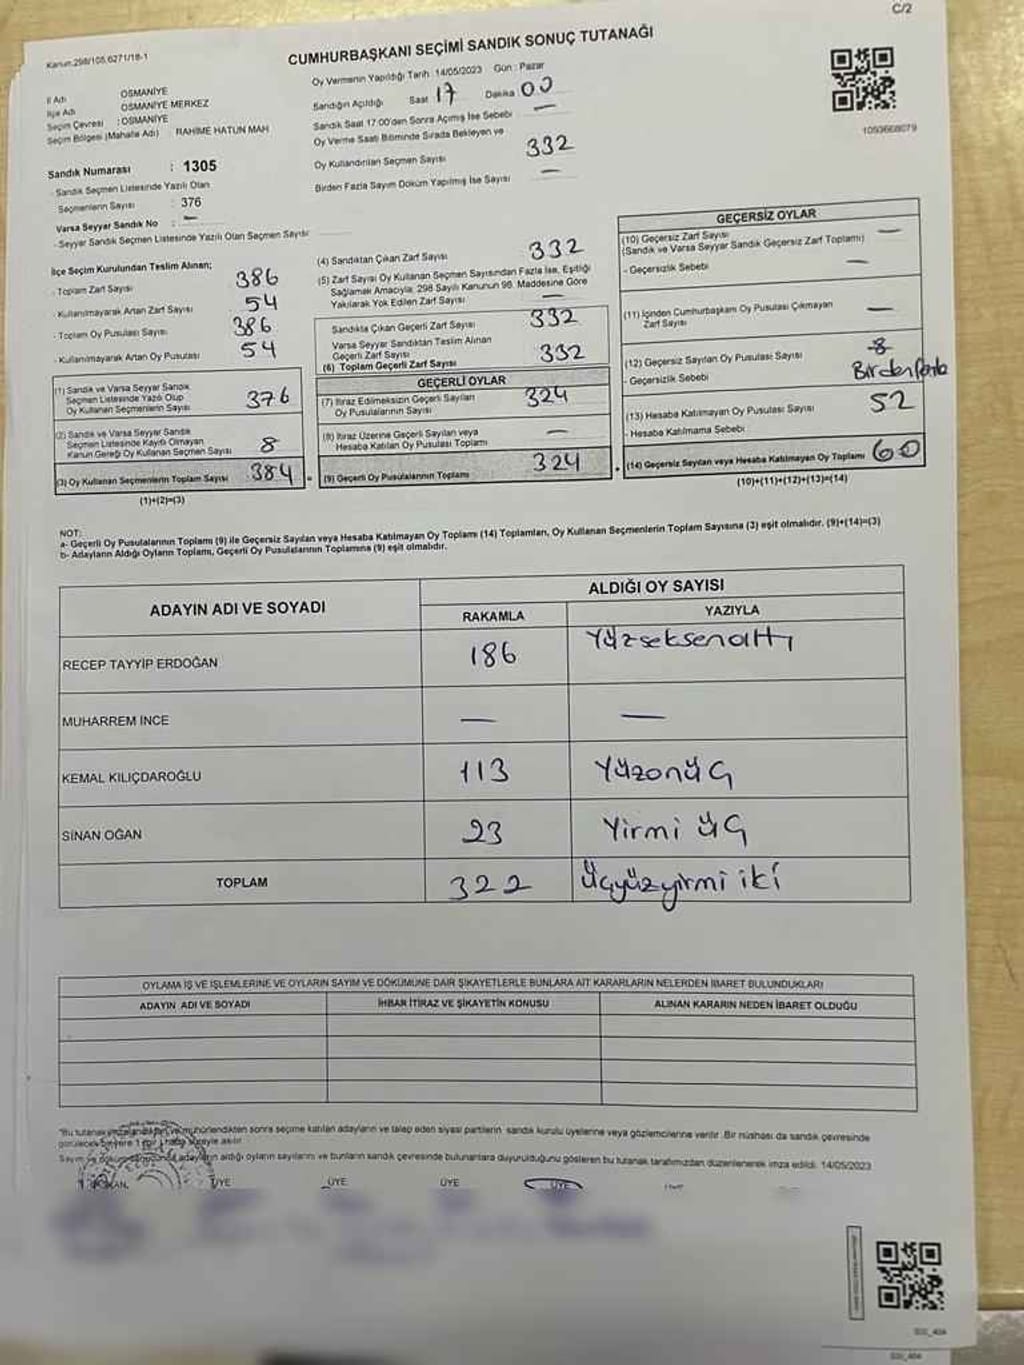 C/2
Kanun:298/105,6271/18-1
CUMHURBAŞKANI SEÇİMİ SANDIK SONUÇ TUTANAĞI
Oy Vermenin Yapıldığı Tarih :14/05/2023 Gün : Pazar
İl Adı OSMANİYE
İlçe Adı OSMANİYE MERKEZ
Seçim Çevresi : OSMANİYE
Seçim Bölgesi (Mahalle Adı) RAHİME HATUN MAH
Sandığın Açıldığı Saat 17 Dakika 00
Sandık Saat 17:00'den Sonra Açımış İse Sebebi —
Oy Verme Saati Bitiminde Sırada Bekleyen ve
Oy Kullandırılan Seçmen Sayısı 332
Birden Fazla Sayım Döküm Yapılmış İse Sayısı —
1093668079
Sandık Numarası : 1305
- Sandık Seçmen Listesinde Yazılı Olan
Seçmenlerin Sayısı : 376
Varsa Seyyar Sandık No : —
- Seyyar Sandık Seçmen Listesinde Yazılı Olan Seçmen Sayısı
İlçe Seçim Kurulundan Teslim Alınan;
- Toplam Zarf Sayısı 386
- Kullanılmayarak Artan Zarf Sayısı 54
- Toplam Oy Pusulası Sayısı 386
- Kullanılmayarak Artan Oy Pusulası 54
(1) Sandık ve Varsa Seyyar Sandık
Seçmen Listesinde Yazılı Olup
Oy Kullanan Seçmenlerin Sayısı 376
(2) Sandık ve Varsa Seyyar Sandık
Seçmen Listesinde Kayıtlı Olmayan
Kanun Gereği Oy Kullanan Seçmen Sayısı 8
(3) Oy Kullanan Seçmenlerin Toplam Sayısı 384
(1)+(2)=(3)
(4) Sandıktan Çıkan Zarf Sayısı 332
(5) Zarf Sayısı Oy Kullanan Seçmen Sayısından Fazla İse, Eşitliği
Sağlamak Amacıyla, 298 Sayılı Kanunun 98. Maddesine Göre
Yakılarak Yok Edilen Zarf Sayısı —
Sandıkta Çıkan Geçerli Zarf Sayısı 332
Varsa Seyyar Sandıktan Teslim Alınan
Geçerli Zarf Sayısı
(6) Toplam Geçerli Zarf Sayısı 332
GEÇERLİ OYLAR
(7) İtiraz Edilmeksizin Geçerli Sayılan
Oy Pusulalarının Sayısı 324
(8) İtiraz Üzerine Geçerli Sayılan veya
Hesaba Katılan Oy Pusulası Toplamı —
(9) Geçerli Oy Pusulalarının Toplamı 324
GEÇERSİZ OYLAR
(10) Geçersiz Zarf Sayısı —
(Sandık ve Varsa Seyyar Sandık Geçersiz Zarf Toplamı)
- Geçersizlik Sebebi —
(11) İçinden Cumhurbaşkanı Oy Pusulası Çıkmayan
Zarf Sayısı —
(12) Geçersiz Sayılan Oy Pusulası Sayısı 8
- Geçersizlik Sebebi Birden fazla
(13) Hesaba Katılmayan Oy Pusulası Sayısı 52
- Hesaba Katılmama Sebebi
(14) Geçersiz Sayılan veya Hesaba Katılmayan Oy Toplamı 60
(10)+(11)+(12)+(13)=(14)
NOT:
a- Geçerli Oy Pusulalarının Toplamı (9) ile Geçersiz Sayılan veya Hesaba Katılmayan Oy Toplamı (14) Toplamları, Oy Kullanan Seçmenlerin Toplam Sayısına (3) eşit olmalıdır. (9)+(14)=(3)
b- Adayların Aldığı Oyların Toplamı, Geçerli Oy Pusulalarının Toplamına (9) eşit olmalıdır.
ADAYIN ADI VE SOYADI ALDIĞI OY SAYISI
RAKAMLA YAZIYLA
RECEP TAYYİP ERDOĞAN 186 Yüzseksenaltı
MUHARREM İNCE — —
KEMAL KILIÇDAROĞLU 113 Yüzonüç
SİNAN OĞAN 23 Yirmi üç
TOPLAM 322 Üçyüzyirmi iki
OYLAMA İŞ VE İŞLEMLERİNE VE OYLARIN SAYIM VE DÖKÜMÜNE DAİR ŞİKAYETLERLE BUNLARA AİT KARARLARIN NELERDEN İBARET BULUNDUKLARI
ADAYIN ADI VE SOYADI İHBAR İTİRAZ VE ŞİKAYETİN KONUSU ALINAN KARARIN NEDEN İBARET OLDUĞU
mühürlendikten sonra seçime katılan adayların ve talep eden siyasi partilerin sandık kurulu üyelerine veya gözlemcilerine verilir. Bir nüshası da sandık çevresinde
aldığı oyların sayılarını ve bunların sandık çevresinde bulunanlara duyurulduğunu gösteren bu tutanak tarafımızdan düzenlenerek imza edildi. 14/05/2023
ÜYE ÜYE ÜYE ÜYE